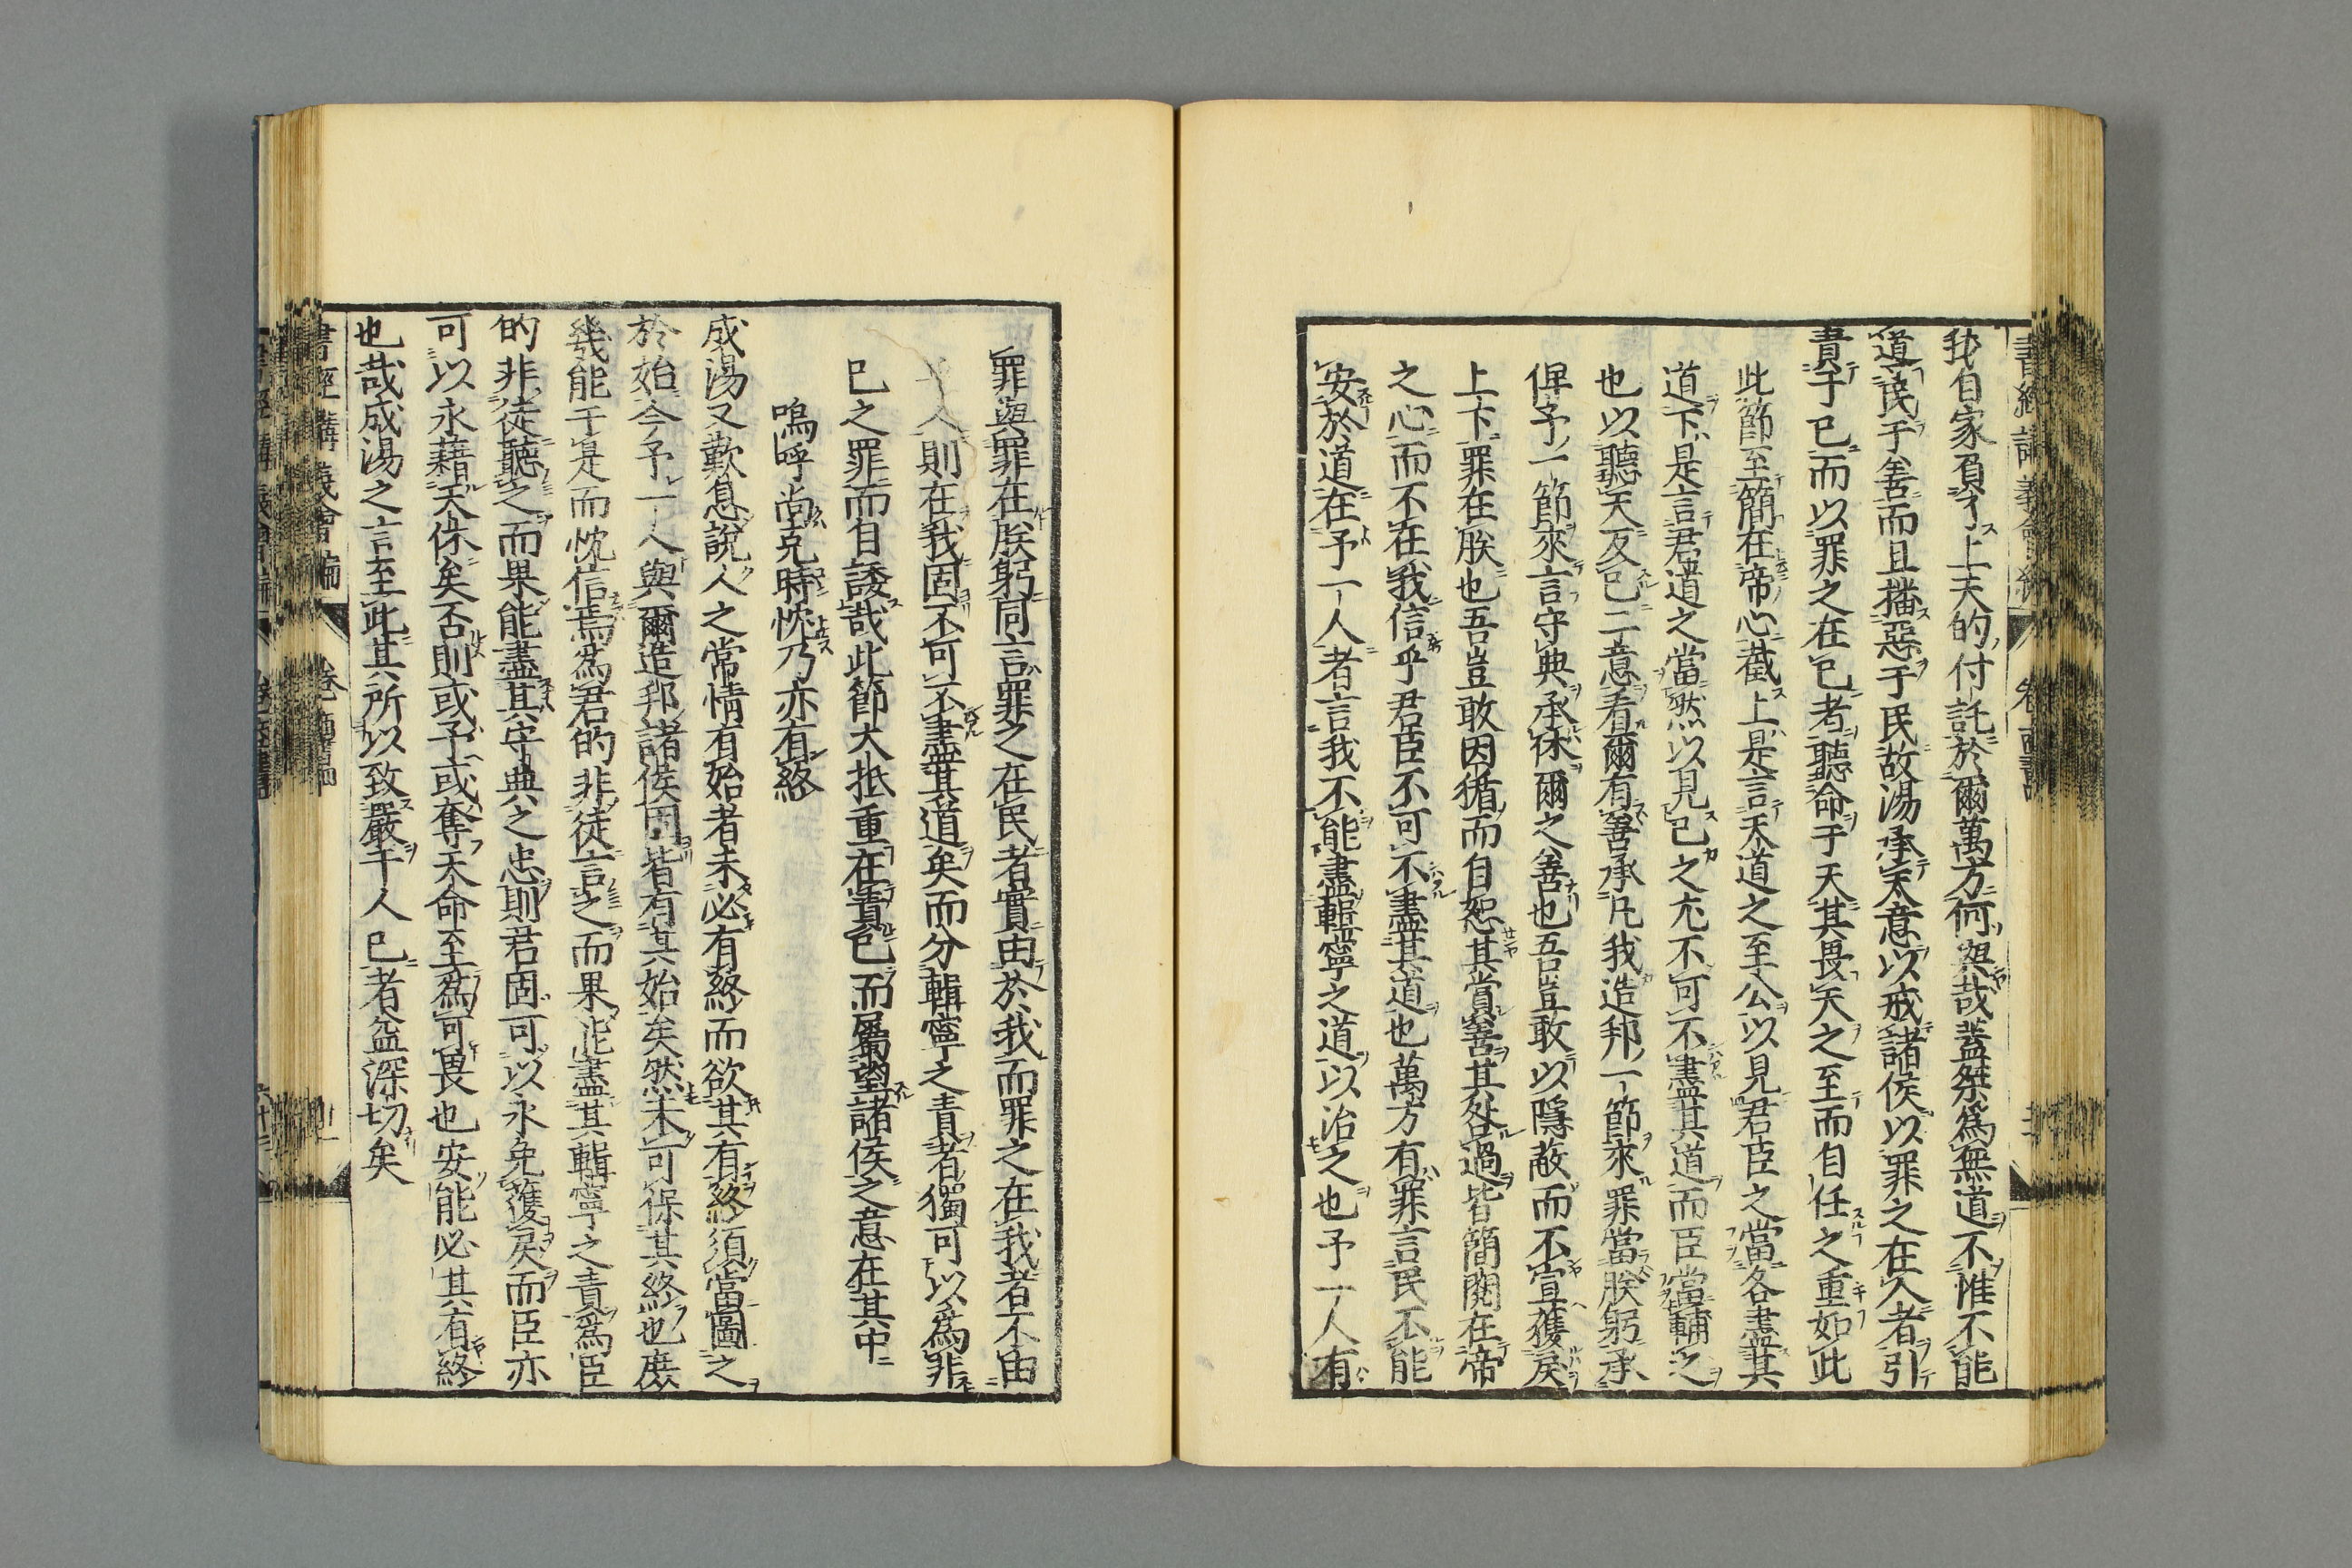 我自家負了上天的付託於爾萬方何與哉蓋桀爲無道不惟不能
道民于善而且播惡于民故湯承天意以戒諸侯以罪之在人者引
責于已而以罪之在已者聽命于天其畏天之至而自任之重如此
此節至簡在帝心截上是言天道之至公以見君臣之當各盡其
道下是言君道之當然以見已之尤不可不盡其道而臣當輔之
也以聽天反已二意看爾有善承凡我造邦一節來罪當朕躬承
俾予一節來言守典承休爾之善也吾豈敢以隱蔽而不宣獲戾
上下罪在朕也吾豈敢因循而自恕其賞善其咎過皆簡閱在帝
之心而不在我信乎君臣不可不盡其道也萬方有罪言民不能
安於道在予一人者言我不能盡輯寧之道以治之也予一人有
罪與罪在朕躬同言罪之在民者實由於我而罪之在我者不由
人則在我固不可不盡其道矣而分輯寧之責者獨可以爲非
已之罪而自諉哉此節大抵重在責已而屬望諸侯之意在其中
嗚呼尚克時忱乃亦有終
成湯又歎息說人之常情有始者未必有終而欲其有終須當圖之
於始今予一人與爾造邦諸侯固皆有其始矣然未可保其終也庶
幾能于是而忱信焉爲君的非徒言之而果能盡其輯寧之責爲臣
的非徒聽之而果能盡其守典之忠則君固可以永免獲戾而臣亦
可以永藉天休矣否則或予或奪天命至爲可畏也安能必其有終
也哉成湯之言至此其所以致嚴于人已者益深切矣
書經講義會編 卷